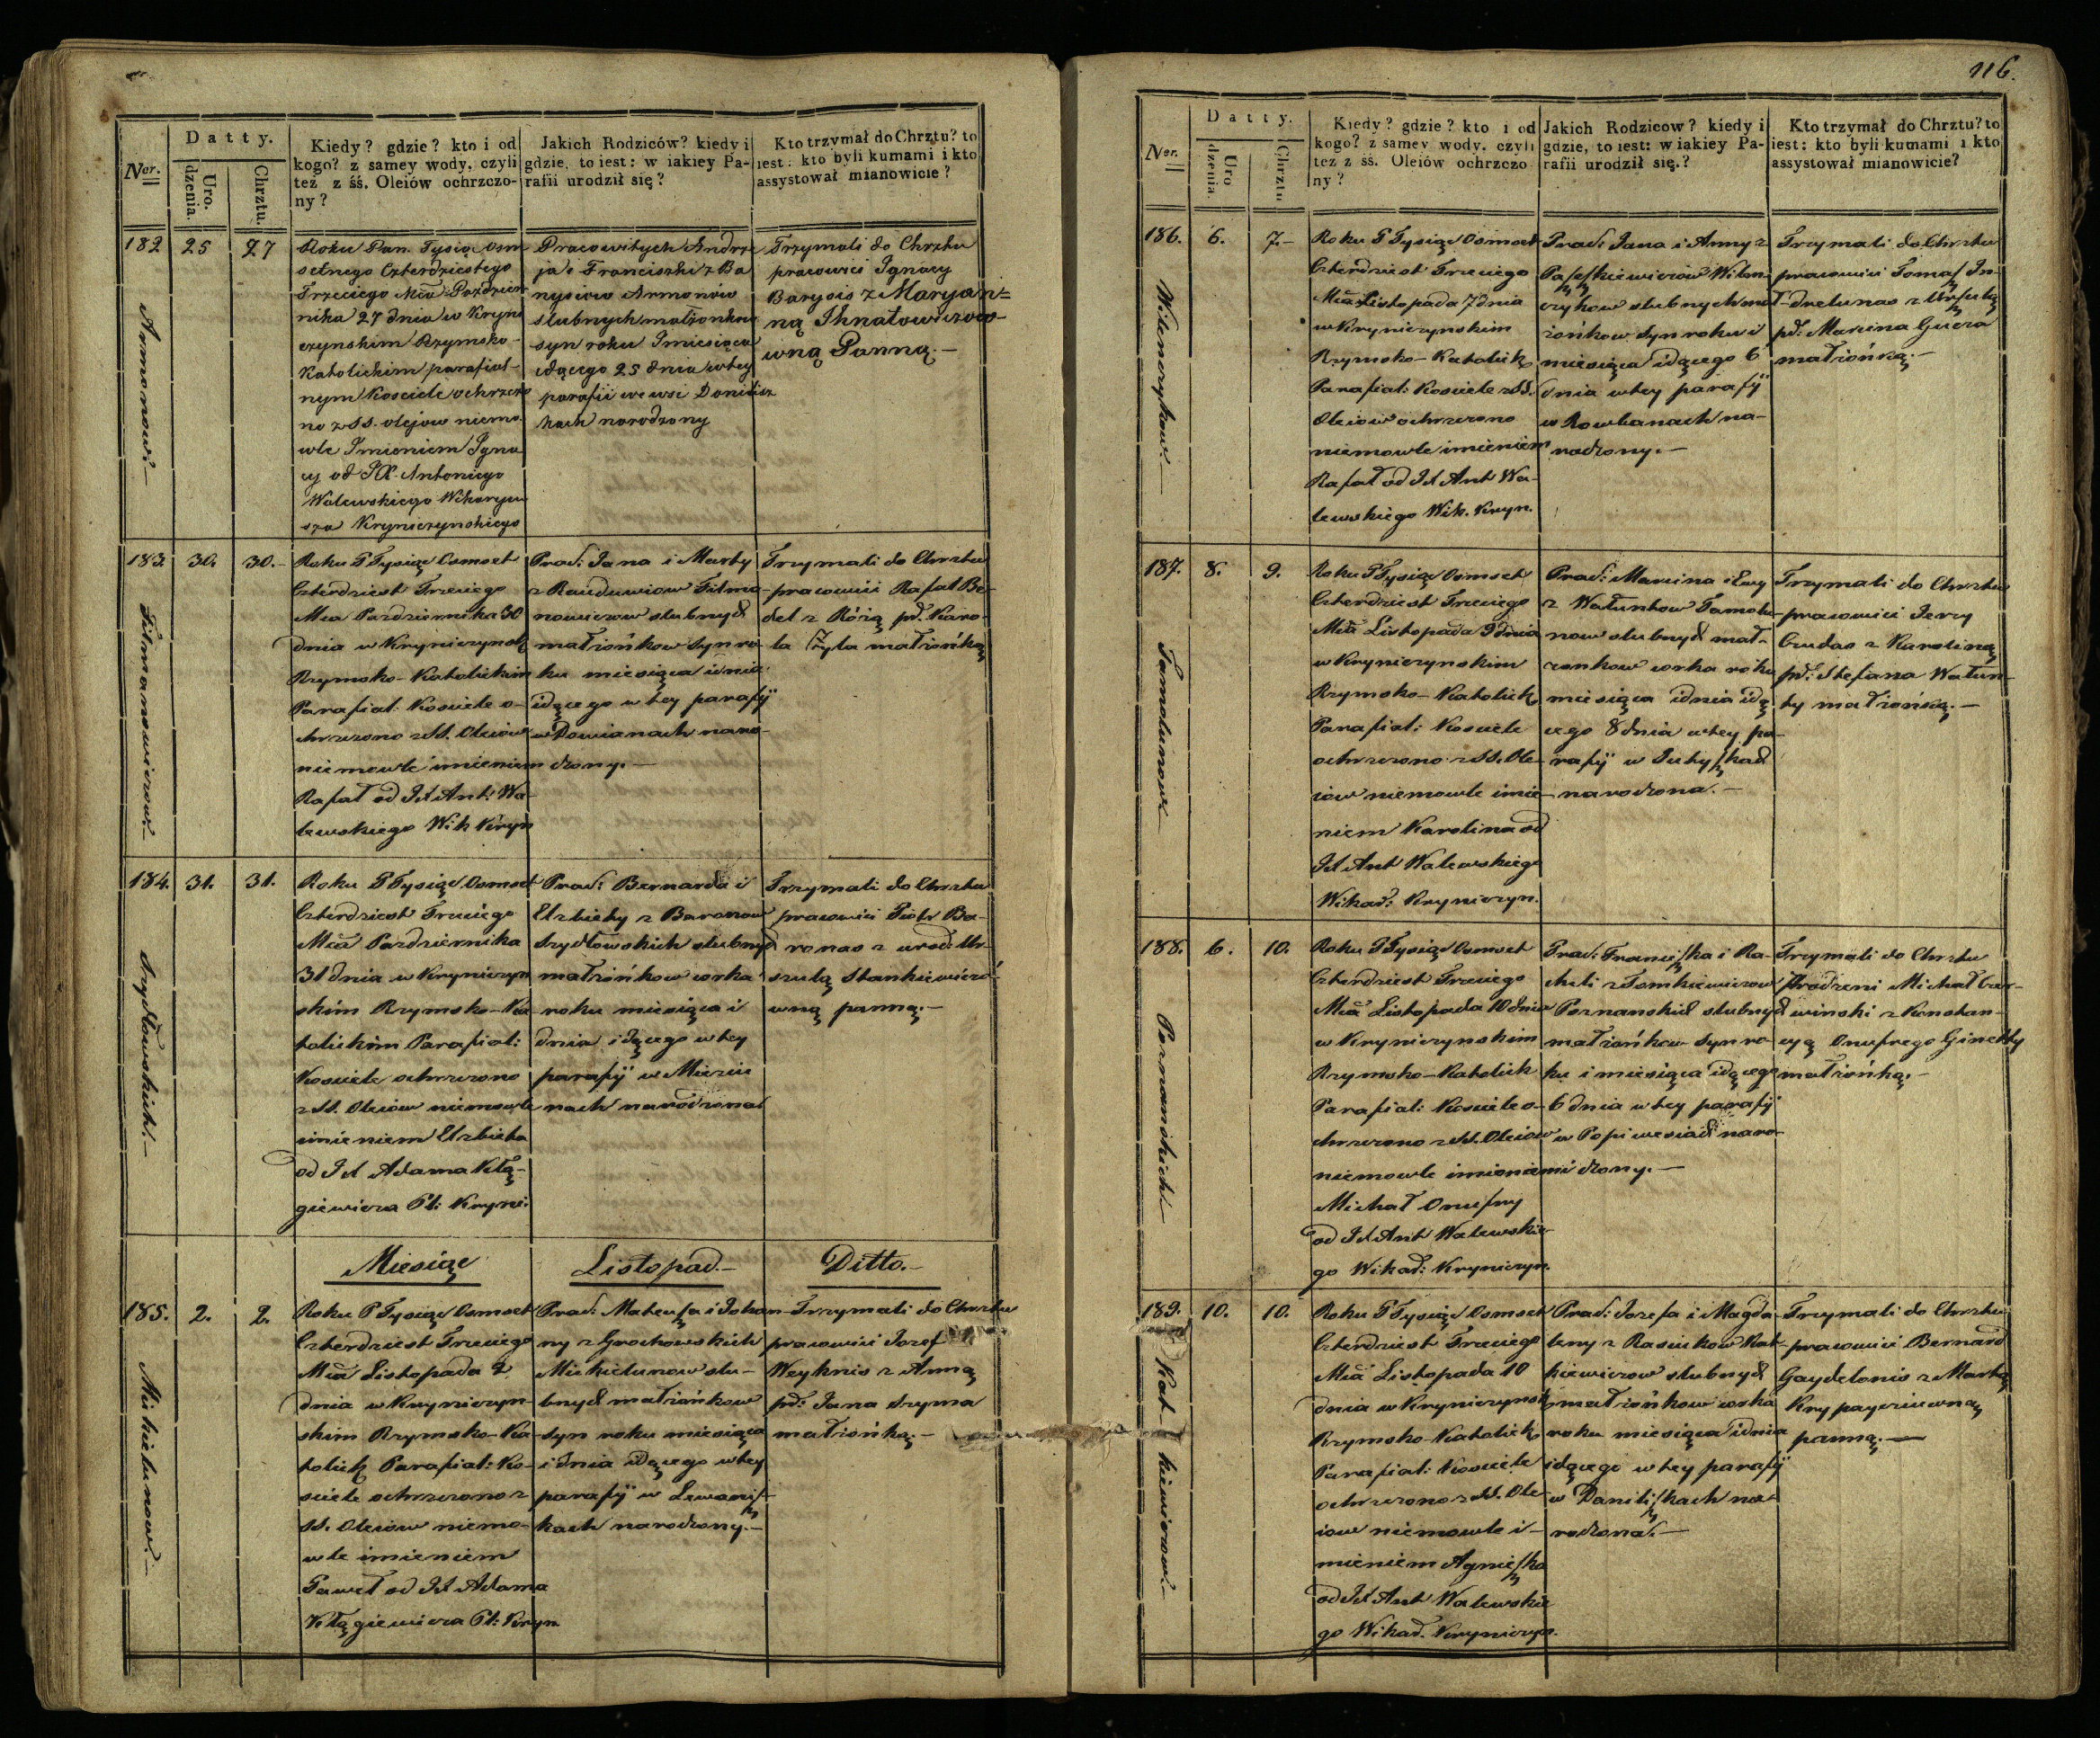 116.
Datty.
Ner.
Uro.
dzenia.
Chrztu.
Kiedy? gdzie? kto i od
kogo? z samey wody, czyli
też z śś. Oleiów ochrzczo-
ny?
Jakich Rodziców? kiedy i
gdzie, to iest: w iakiey Pa-
rafii urodził się?
Kto trzymał do Chrztu? to
iest: kto byli kumami i kto
assystował mianowicie?
182
25
27
Armonow.
Roku Pan. Tysiąc Osm
setnego Czterdziestego
Trzeciego Mca Paździer
nika 27 dnia w Kryni
czynskim Rzymsko-
Katolickim parafial-
nym Kosciele ochrzczo
no z SS. olejow niemo
wle Imieniem Igna
cy od JX Antoniego
Walewskiego Wikaryu
sza Kryniczynskiego
Pracowitych Andrze
ja i Franciszki z Ba
nysiow Armonów
slubnych małżonkow
syn roku i miesiąca
idącego 25 dnia w tey
parafii we wsi Danilisz
kach narodzony
Trzymali do Chrztu
pracowici Ignacy
Barysis z Maryan=
ną Ihnatowiczow-
wną Panną.-
183.
30.
30.-
Filmanowiczow.-
Roku P Tysiąc Osmset
Czterdziest Trzeciego
Mca Pazdziernika 30
dnia w Kryniczynsk
Rzymsko-Katolickim
Parafial. Kosciele o-
chrzczono z SS. Oleiow
niemowle imieniem
Rafał od JX Ant. Wa-
lewskiego Wik Kryn
Prac: Jana i Marty
z Rauduwiow Filma-
nowiczow slubnych
małżonkow syn ro-
ku miesiąca i dnia
idącego w tey parafij
w Dowianach naro-
dzony.-
Trzymali do Chrztu
pracowici Rafał Be-
del z Rózą pd. Karo-
la Zyla małżonką
184.
31.
31.
Szydłowskich.-
Roku P Tysiąc Osmset
Czterdziest Trzeciego
Mca Pazdziernika
31 dnia w Kryniczyn
skim Rzymsko-Ka
tolickim Parafial:
Kosciele ochrzczono
z SS. Oleiow niemowle
imieniem Elzbieta
od JX Adama Kłą-
giewicza Pl: Kryni:
Prac: Bernarda i
Elzbiety z Baronow
Szydłowskich slubnych
małżonkow corka
roku miesiąca i
dnia idącego w tey
parafij w Miciu
nach narodzona
Trzymali do Chrztu
pracowici Piotr Ba-
ronas z urod: Ur-
szulą Stankiewiczo-
wną panną.-
Miesiąc
Listopad.-
Ditto.-
185.
2.
2.
Mikielunow.-
Roku P Tysiąc Osmset
Czterdziest Trzeciego
Mca Listopada 2
dnia w Kryniczyn-
skim Rzymsko-Ka
tolick Parafial: Ko-
sciele ochrzczono z
SS. Oleiow niemo-
wle imieniem
Paweł od JX Adama
Kłągiewicza Pl: Kryn
Prac: Mateusza i Johan-
ny z Grochowskich
Mikielunow slu-
bnych małżonkow
syn roku miesiąca
i dnia idącego w tey
parafij w Lewanisz
kach narodzony.-
Trzymali do Chrztu
pracowici Jozef
Weyknis z Anną
pd: Jana Szyma
małżonką.-
Datty.
Ner.
Uro
dzenia.
Chrztu
Kiedy? gdzie? kto i od
kogo? z samey wody, czyli
też z śś. Oleiów ochrzczo
ny?
Jakich Rodziców? kiedy i
gdzie, to iest: w iakiey Pa-
rafii urodził się.?
Kto trzymał do Chrztu? to
iest: kto byli kumami i kto
assystował mianowicie?
186.
6.
7.-
Witorzykow.-
Roku P Tysiąc Osmset
Czterdziest Trzeciego
Mca Listopada 7 dnia
w Kryniczynskim
Rzymsko-Katolick
Parafial: Kosciele z SS.
Oleiow ochrzczono
niemowle imieniem
Rafał od JX Ant Wa-
lewskiego Wik. Kryn.
Prac: Jana i Anny z
slubnych mał-
żonkow syn roku i
miesiąca idącego 6
dnia w tey parafij
w Rowbanach na-
rodzony.-
Trzymali do Chrztu
pracowici Tomasz In-
drelunas z Urszulą
pd. Marcina Gucza
małżonką.-
187.
8.
9.
Tamolunow.-
Roku P Tysiąc Osmset
Czterdziest Trzeciego
Mca Listopada 9 dnia
w Kryniczynskim
Rzymsko-Katolick
Parafial: Kosciele
ochrzczono z SS. Ole-
iow niemowle imie-
niem Karolina od
JX Ant Walewskiego
Wikar: Kryniczyn.
Prac: Marcina i Ewy
z Wałuntow Tamolu-
now slubnych mał-
zonkow corka roku
miesiąca i dnia idą
cego 8 dnia w tey pa-
rafij w
narodzona.-
Trzymali do Chrztu
pracowici Jerzy
Czudas z Karoliną
pd: Stefana Wałun-
ty małżonką.-
188.
6.
10.
Poznanskich.-
Roku P Tysiąc Osmset
Czterdziest Trzeciego
Mca Listopada 10 dnia
w Kryniczynskim
Rzymsko-Katolick
Parafial: Kosciele o-
chrzczono z SS. Oleiow
niemowle imionami
Michał Onufry
od JX Ant Walewskie
go Wikar: Krynicyn.
Prac: Franciszka i Ra-
cheli z Tomkiewiczow
Poznanskich slubnych
małżonkow syn ro-
ku i miesiąca idącego
6 dnia w tey parafij
w Popiwesiach naro-
dzony.-
Trzymali do Chrztu
Urodzeni Michał Czer-
winski z Konstan-
cyą Onufrego Ginetty
małżonką.-
189.
10.
10.
Katkiewiczow.-
Roku P Tysiąc Osmset
Czterdziest Trzeciego
Mca Listopada 10
dnia w Krynicynsk
Rzymsko-Katolick
Parafial: Kosciele
ochrzczono z SS. Ole-
iow niemowle i-
mieniem Agnieszka
od JX Ant Walewskie
go Wikar. Krynicyn.
Prac: Jozefa i Magda-
leny z Rasiukow Kat-
kiewiczow slubnych
małżonkow corka
roku miesiąca i dnia
idącego w tey parafij
w Daniliszkach na-
rodzona.-
Trzymali do Chrztu
pracowici Bernard
Gaydelonis z Martą
panną.-